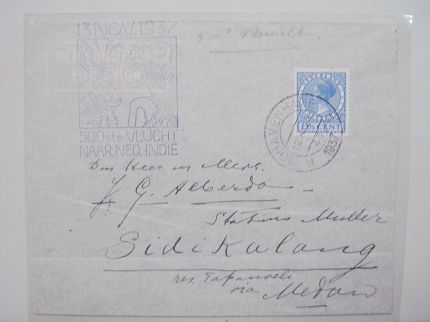 13 NOV. 1937
500ste VLUCHT
NAAR NED. INDIË
500e
NEDERLAND
12½ CENT
1937
Den Heer en Mevr.
J. G. Alberda
Station Muller
Sidikalang
res. Tapanoeli
via Medan